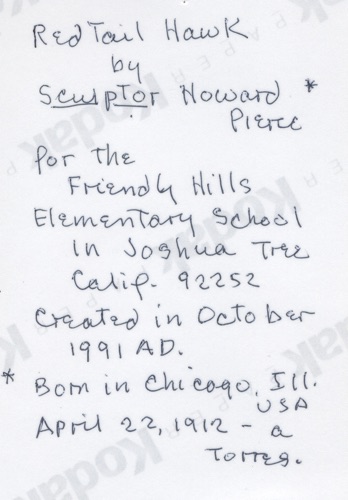 Red Tail Hawk
by
Sculptor Howard *
Pierce
for the
Friendly Hills
Elementary School
in Joshua Tree
Calif. 92252
Created in October
1991 AD.
* Born in Chicago, Ill.
USA
April 22, 1912 - a
Torres.
Kodak
PAPER